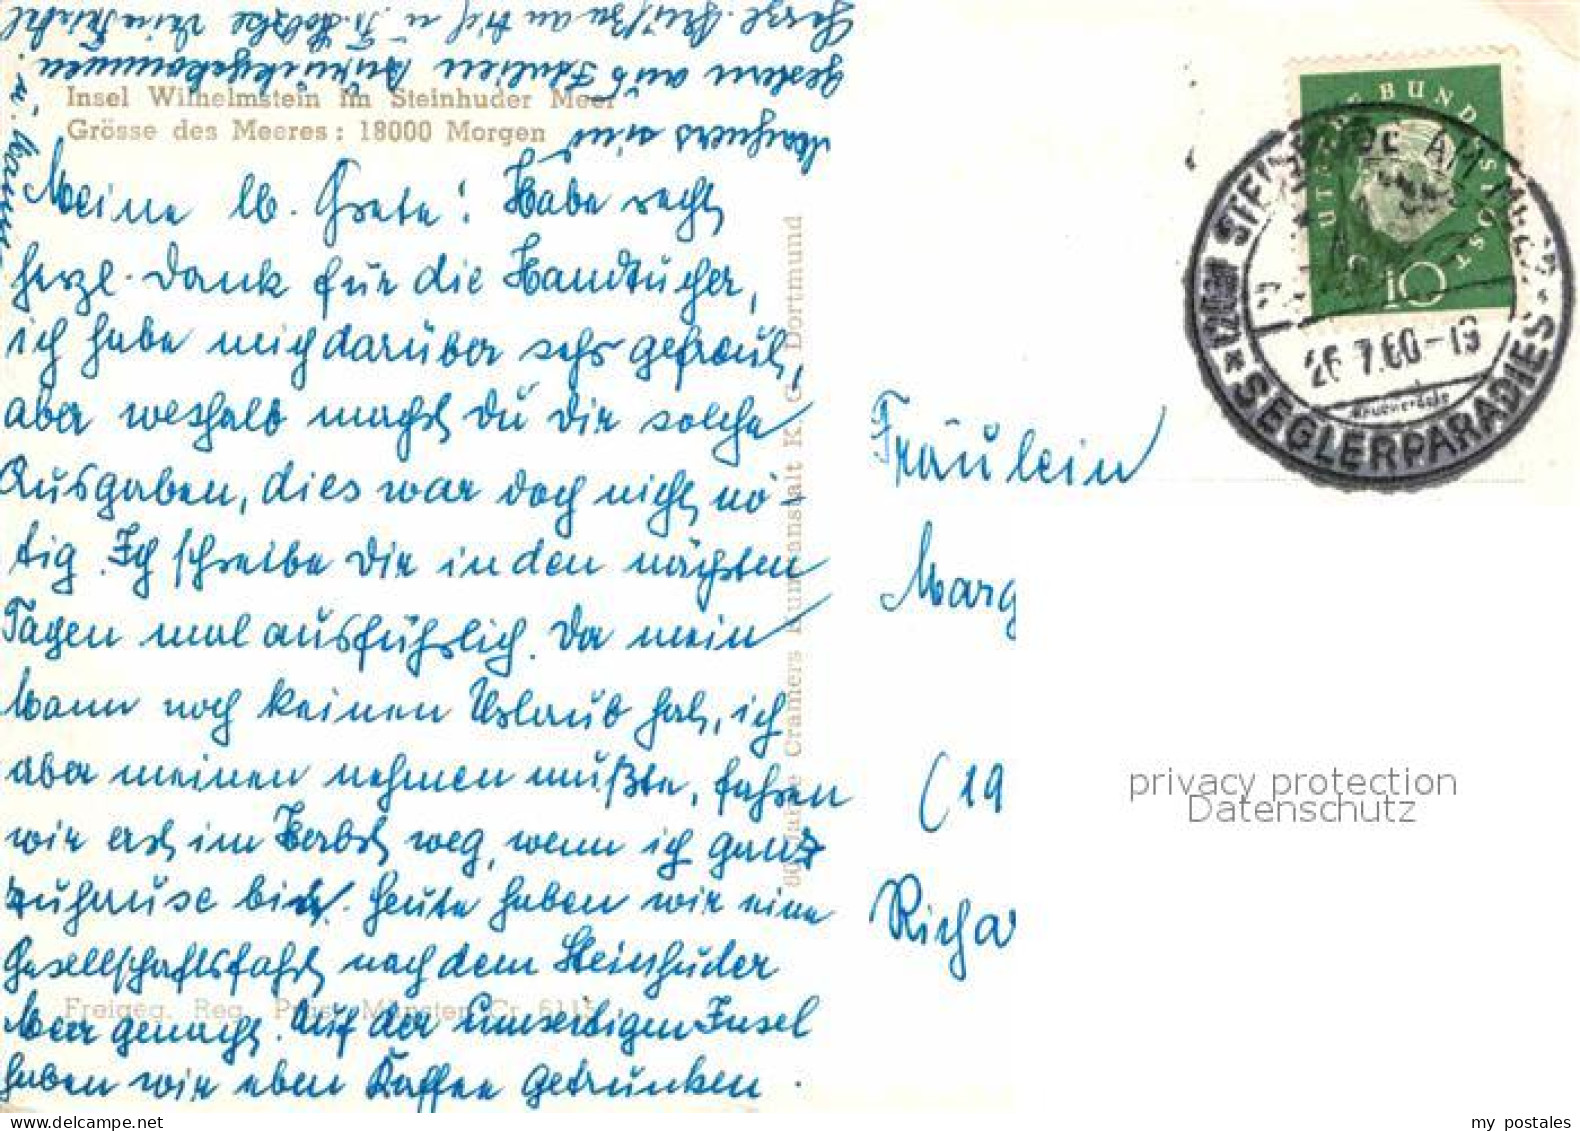 Insel Wilhelmstein im Steinhuder Meer
Grösse des Meeres: 18000 Morgen
Meine lb. Grete! Habe recht
herzl. Dank für die Handtücher,
ich habe mich darüber sehr gefreut,
aber weshalb machst Du Dir solche
Ausgaben, dies war doch nicht nö-
tig. Ich schreibe Dir in den nächsten
Tagen mal ausführlich. Da mein
Mann noch keinen Urlaub hat, ich
aber meinen nehmen mußte, fahren
wir erst im Herbst weg, wenn ich ganz
zuhause bin. Heute haben wir eine
Gesellschaftsfahrt nach dem Steinhuder
Meer gemacht. Auf der umseitigen Insel
haben wir eben Kaffee getrunken.
Wagners sind
gestern aus Italien zurückgekommen
Herzl. Grüße an Dich u. Fr.
u. Mann
Freigeg. Reg. Präs. Münster Cr. 6115
60 Jahre Cramers Kunstanstalt K. G. Dortmund
DEUTSCHE BUNDESPOST
10
STEINHUDE AM MEER
26.7.60-19
SEGLERPARADIES
Fräulein
Marg
(19
Richa
privacy protection
Datenschutz
my postales